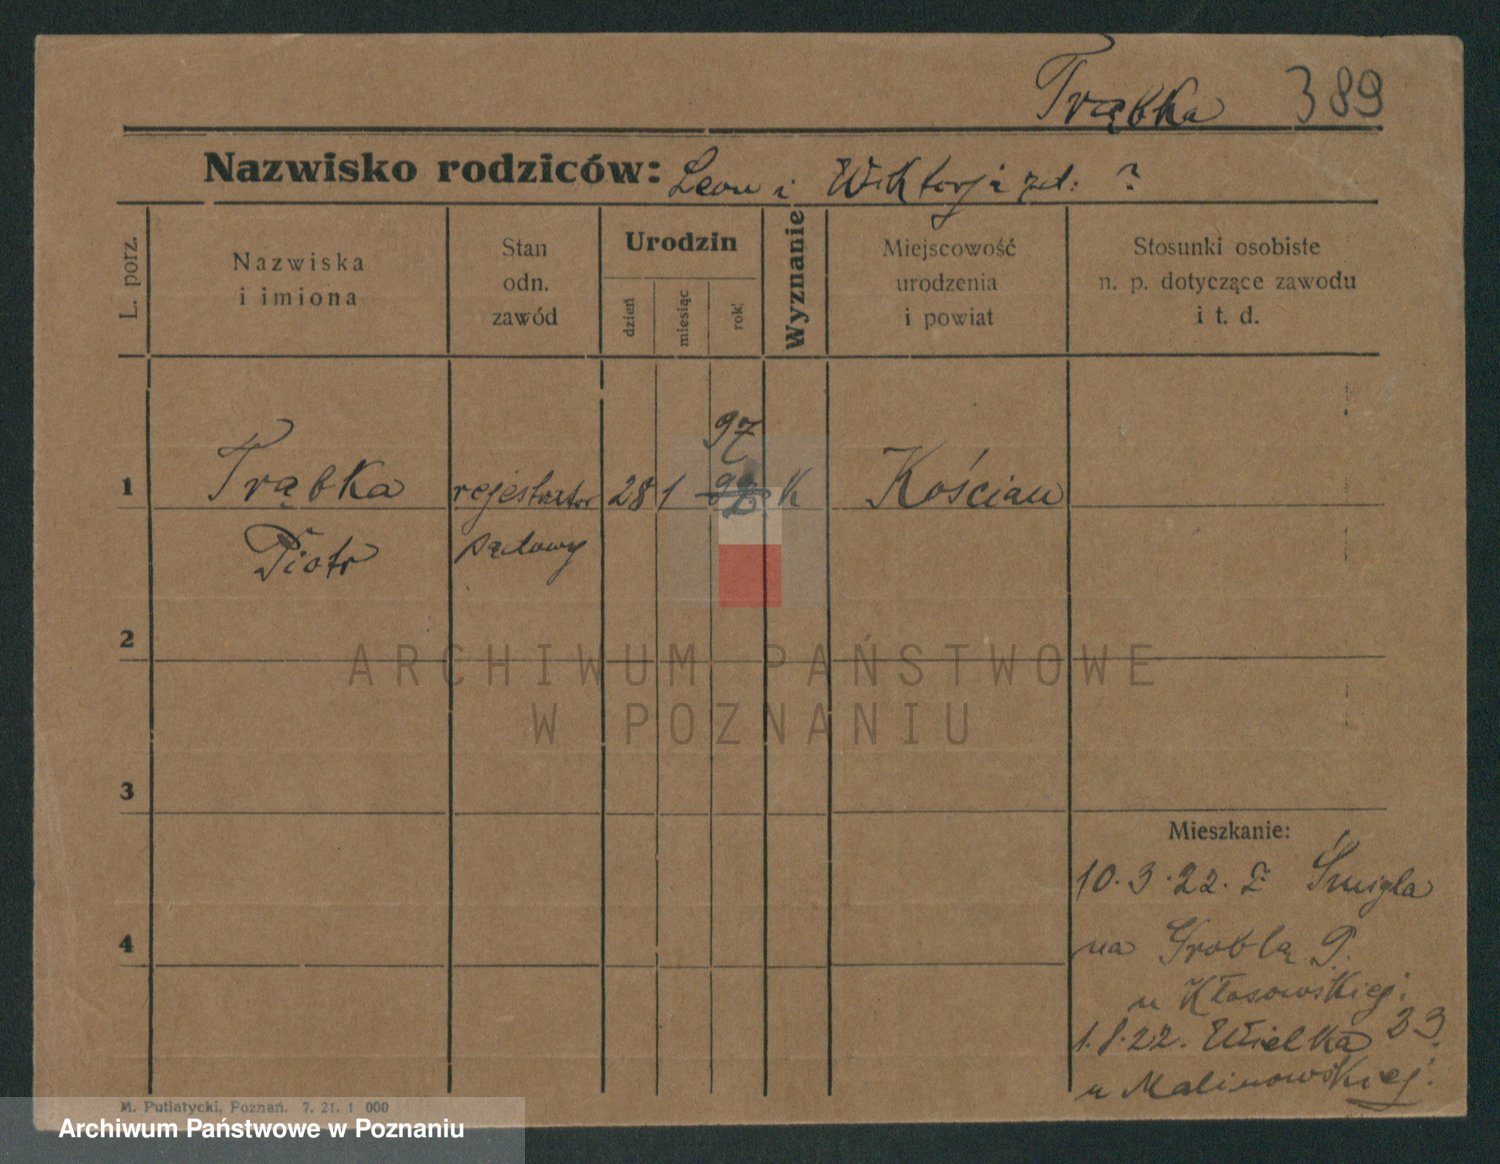 Trąbka 389
Nazwisko rodziców: Leon i Wiktorja zd: ?
L. porz.
Nazwiska
i imiona
Stan
odn.
zawód
Urodzin
dzień
miesiąc
rok
Wyznanie
Miejscowość
urodzenia
i powiat
Stosunki osobiste
n. p. dotyczące zawodu
i t. d.
97
1 Trąbka rejestrator 28 1 99 K Kościan
Piotr sądowy
2
ARCHIWUM PAŃSTWOWE
W POZNANIU
3
Mieszkanie:
10.3.22. z Śmigla
4
na Groblą 9.
u Kłosowskiej.
1.8.22. Wielka 23.
u Malinowskiej.
M. Putiatycki, Poznań. 7. 21. 1 000
Archiwum Państwowe w Poznaniu